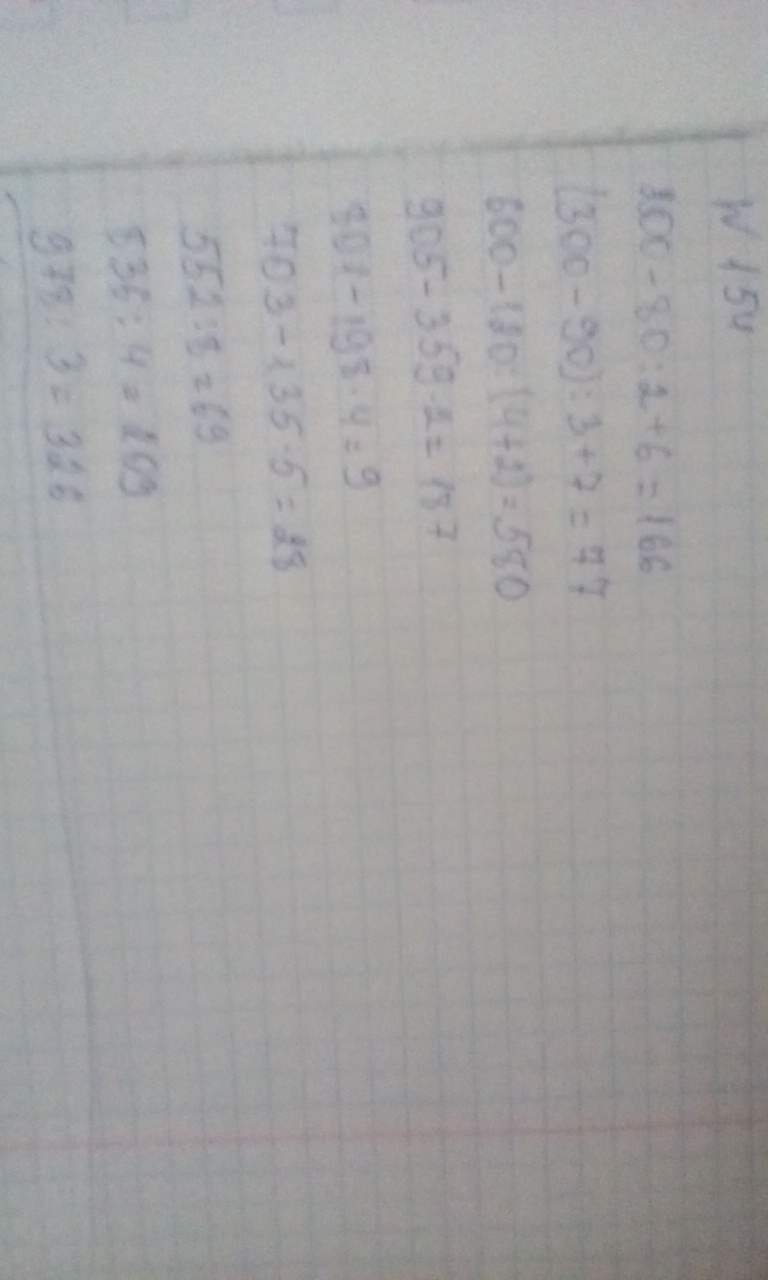 № 154
200 - 80 : 2 + 6 = 166
(300 - 90) : 3 + 7 = 77
600 - 180 : (4+2) = 580
905 - 359 · 2 = 187
801 - 198 · 4 = 9
703 - 135 · 5 = 28
552 : 8 = 69
836 : 4 = 209
978 : 3 = 326